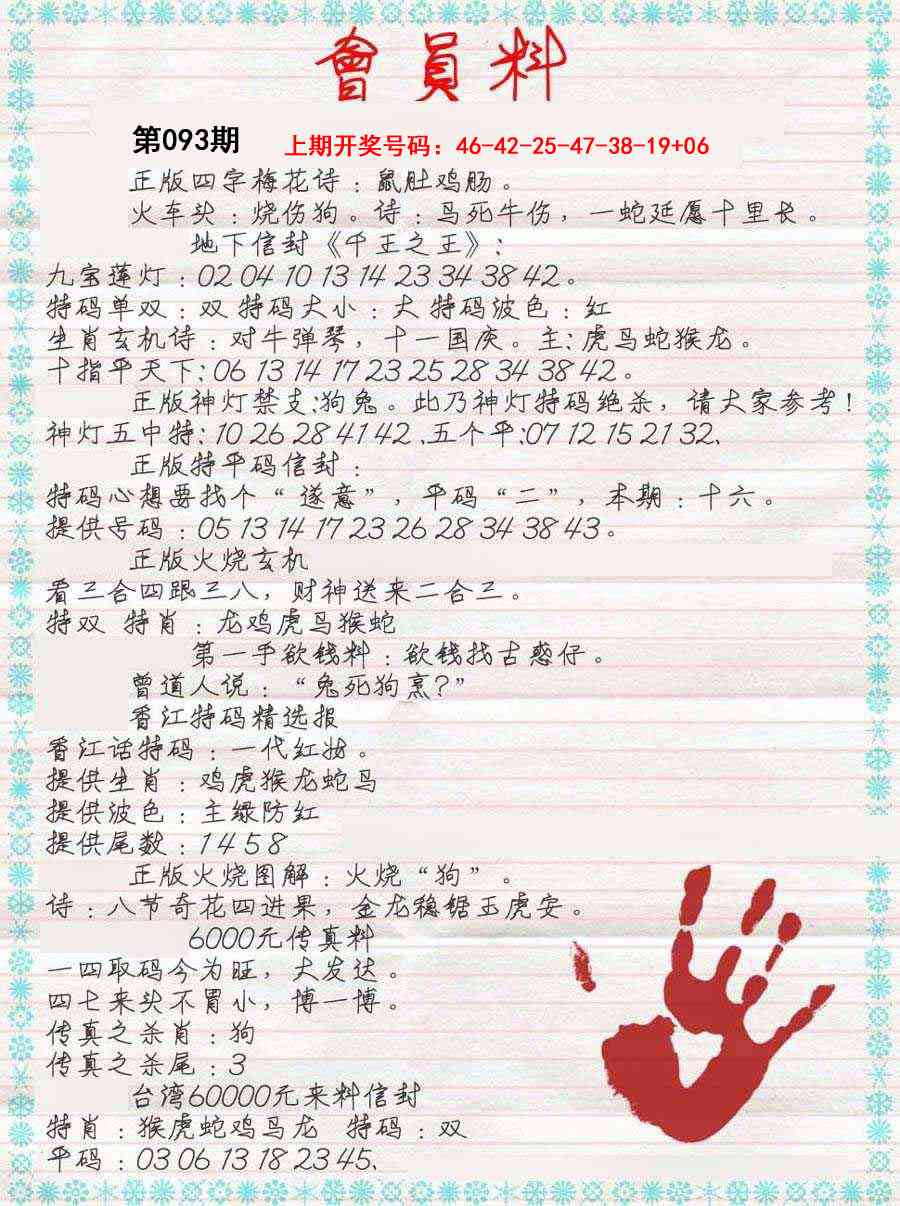 會員料
第093期 上期开奖号码：46-42-25-47-38-19+06
正版四字梅花诗：鼠肚鸡肠。
火车头：烧伤狗。诗：鸟死牛伤，一蛇延愿十里长。
地下信封《千王之王》：
九宝莲灯：02 04 10 13 14 23 34 38 42。
特码单双：双 特码大小：大 特码波色：红
生肖玄机诗：对牛弹琴，十一国庆。主：虎鸟蛇猴龙。
十指平天下：06 13 14 17 23 25 28 34 38 42。
正版神灯禁支：狗兔。此乃神灯特码绝杀，请大家参考！
神灯五中特：10 26 28 41 42、五个平：07 12 15 21 32、
正版特平码信封：
特码心想要找个“遂意”，平码“二”，本期：十六。
提供号码：05 13 14 17 23 26 28 34 38 43。
正版火烧玄机
看三合四跟三八，财神送来二合三。
特双 特肖：龙鸡虎鸟猴蛇
第一手欲钱料：欲钱找古惑仔。
曾道人说：“兔死狗烹?”
香江特码精选报
香江话特码：一代红妆。
提供生肖：鸡虎猴龙蛇鸟
提供波色：主绿防红
提供尾数：1 4 5 8
正版火烧图解：火烧“狗”。
诗：八节奇花四进果，金龙稳锯玉虎安。
6000元传真料
一四取码今为旺，大发达。
四七来头不胃小，博一博。
传真之杀肖：狗
传真之杀尾：3
台湾60000元来料信封
特肖：猴虎蛇鸡鸟龙 特码：双
平码：03 06 13 18 23 45、